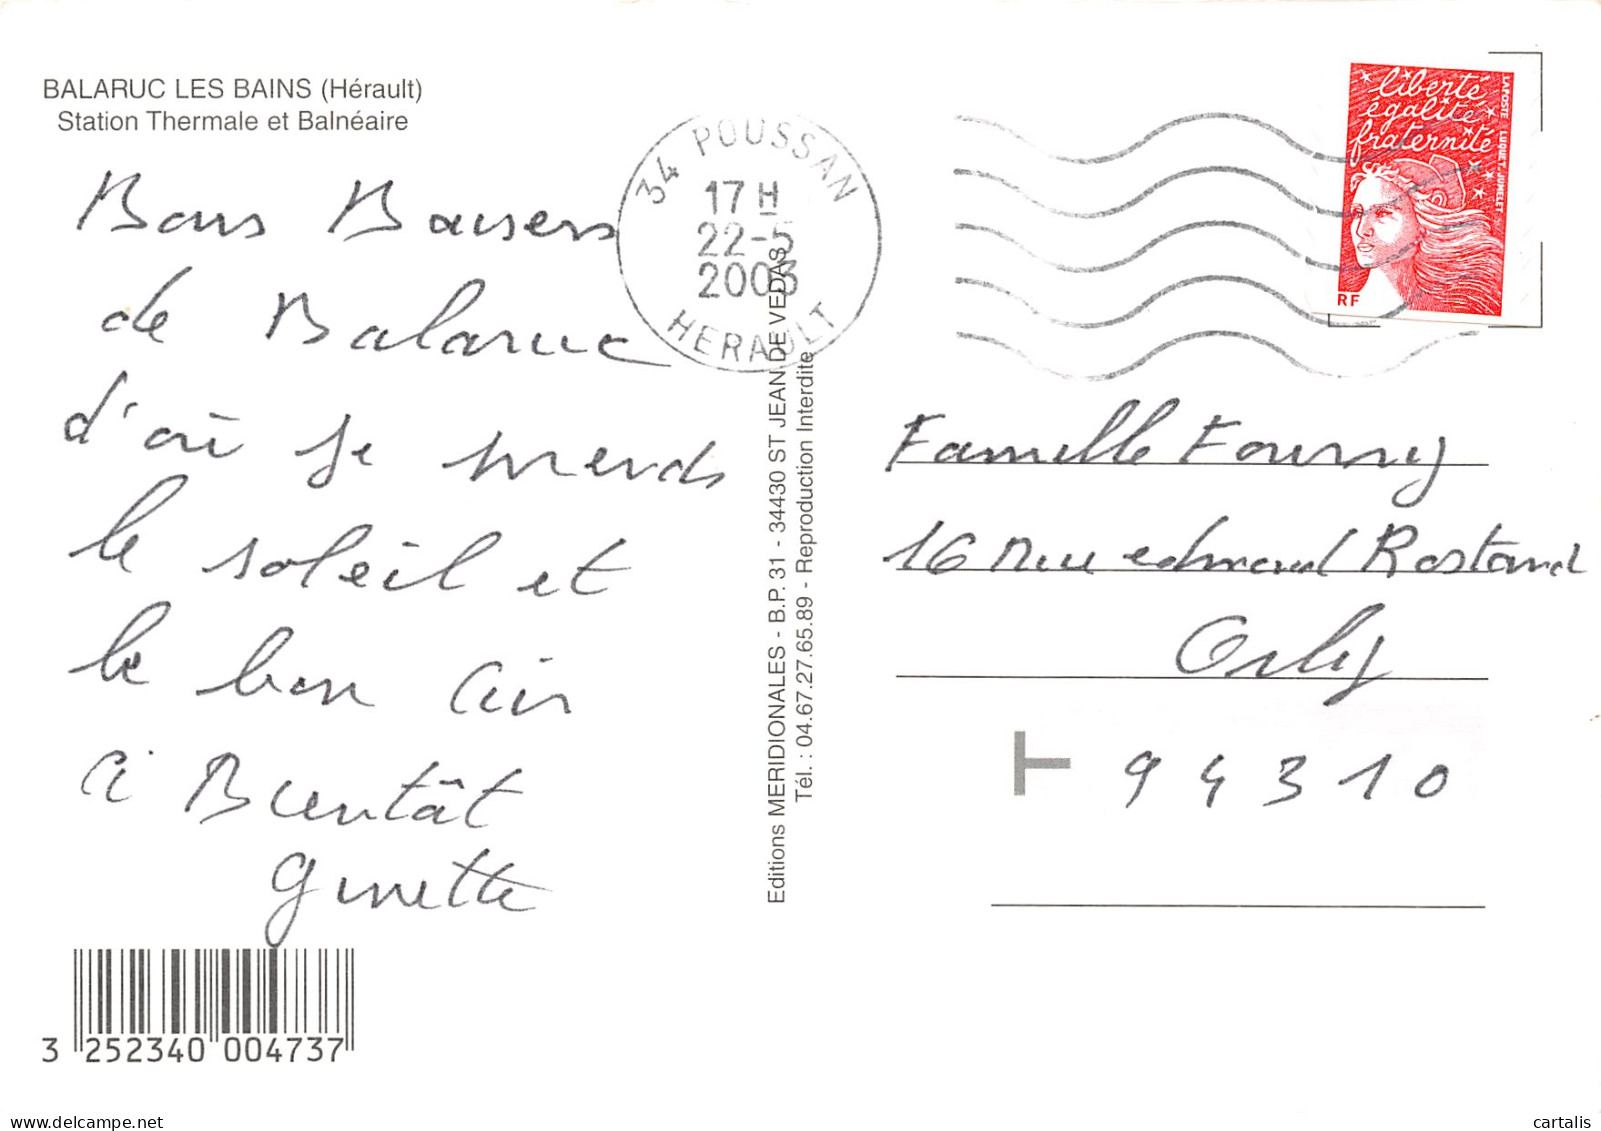 BALARUC LES BAINS (Hérault)
Station Thermale et Balnéaire
Bons Baisers
de Balaruc
d'où je prends
le soleil et
le bon air
à Bientôt
Ginette
3 252340 004737
34 POUSSAN
17 H
22-5
2003
HERAULT
Editions MERIDIONALES - B.P. 31 - 34430 ST JEAN DE VEDAS
Tél. : 04.67.27.65.89 - Reproduction Interdite
liberté
égalité
fraternité
LA POSTE LUQUET, JUMELET
RF
Famille Fourny
16 rue edmond Rostand
Orly
T 94310
delcampe.net
cartalis